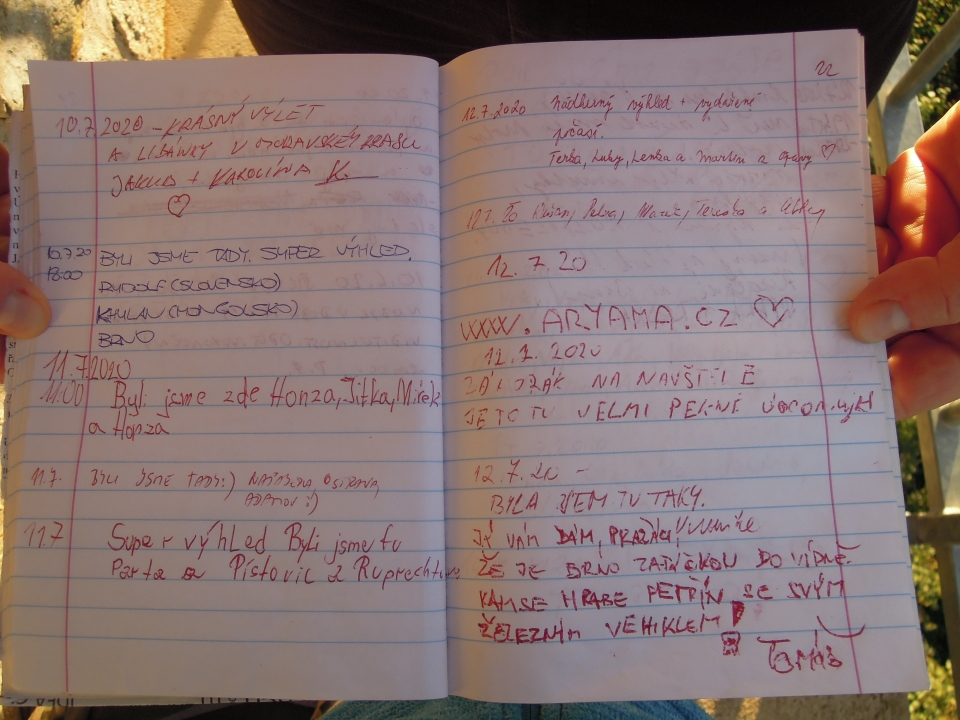 10.7.2020 - KRÁSNÝ VÝLET
A LIBAWKY V MORAVSKÉM KRASU
JAKUB + KAROLÍNA K.
10.7.20 BYLI JSME TADY. SUPER VÝHLED.
18:00 RUDOLF (SLOVENSKO)
(MONGOLSKO)
BRNO
11.7.2020
11:00 Byli jsme zde Honza, Jitka, Mirek
a Honza
11.7. BYLI JSME TADY :) OSTRAVA,
ADAMOV :)
11.7 Super výhled Byli jsme tu
Parta z Pístovic z
22
12.7.2020 Nádherný výhled + vydařené
počasí.
Terka, Luky, Lenka a Martin z Opavy ♡
Terezka a
12.7.20
www.ARYAMA.CZ ♡
12.7.2020
NA
JE TO TU VELMI PEKNÉ
12.7.20 -
BYLA JSEM TU TAKY.
JÁ VÁM DÁM, PRAŽÁCI,
ŽE JE BRNO ZATÁČKOU DO VÍDNĚ.
KAM SE HRABE PETŘÍN SE SVÝM
ŽELEZNÝM VEHIKLEM!
Tomáš